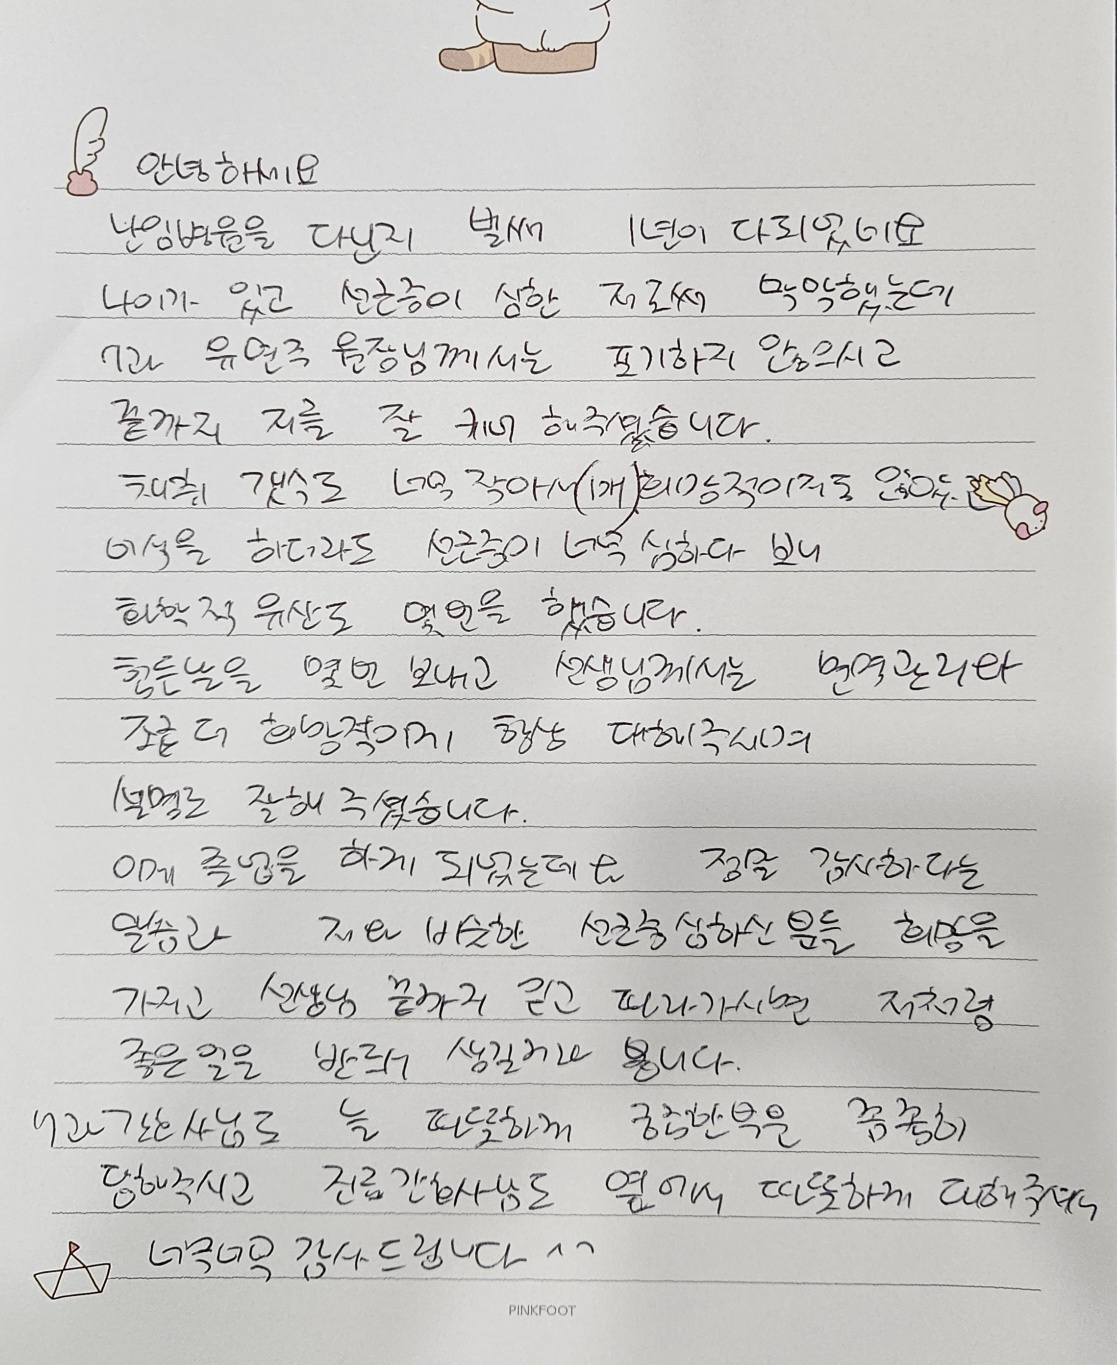 안녕하세요
난임병원을 다닌지 벌써 1년이 다되었네요
나이가 있고 선근증이 심한 저로써 막막했는데
7과 유연주 원장님께서는 포기하지 않으시고
끝까지 저를 잘 케어 해주셨습니다.
채취 갯수도 너무 작아서(1개)희망적이지도 않았
이식을 하더라도 선근증이 너무 심하다 보니
화학적 유산도 몇번을 했습니다.
힘든날을 몇번 보내고 선생님께서는 면역관리와
조금 더 희망적이게 항상 대해주시며
설명도 잘해 주셨습니다.
이제 졸업을 하게 되었는데요 정말 감사하다는
말씀과 저와 비슷한 선근증 심하신 분들 희망을
가지고 선생님 끝까지 믿고 따라가시면 저처럼
좋은일을 반드시 생길거라 봅니다.
7과 간호사님도 늘 따뜻하게 궁금한부분을 꼼꼼히
답해주시고 진료간호사님도 옆에서 따뜻하게 대해주셔서
너무너무 감사드립니다 ^^
PINKFOOT